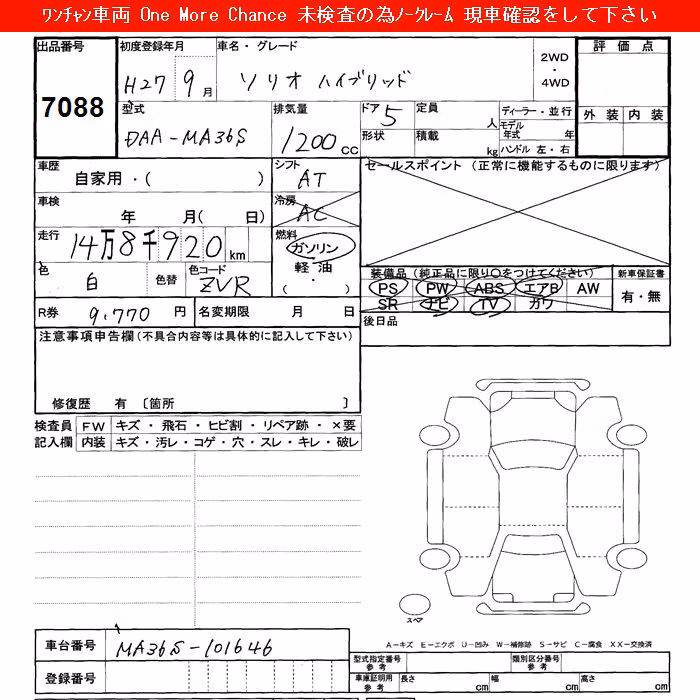 ﾜﾝﾁｬﾝ車両 One More Chance 未検査の為ﾉｰｸﾚｰﾑ 現車確認をして下さい
出品番号 7088
初度登録年月 H27 9月
車名・グレード ソリオ ハイブリッド
2WD ・ 4WD
評価点
外装 内装
型式 DAA-MA36S
排気量 1200 cc
ドア 5
形状
定員 人
積載 kg
ディーラー・並行
モデル年式 年
ハンドル 左・右
車歴 自家用・( )
シフト AT
セールスポイント (正常に機能するものに限ります)
車検 年 月( 日)
冷房 AC
走行 14万8千920 km
燃料 ガソリン
軽油
( )
色 白 色替
色コード ZVR
装備品 (純正品に限り○をつけてください)
PS PW ABS エアB AW
SR ナビ TV カワ
新車保証書
有・無
R券 9,770 円
名変期限 月 日
後日品
注意事項申告欄(不具合内容等は具体的に記入して下さい)
修復歴 有 〔箇所 〕
検査員記入欄
FW キズ・飛石・ヒビ割・リペア跡・×要
内装 キズ・汚レ・コゲ・穴・スレ・キレ・破レ
スペア
A－キズ E－エクボ U－凹み W－補修跡 S－サビ C－腐食 XX－交換済
車台番号 MA36S-101646
登録番号
型式指定番号 参考
類別区分番号 参考
車庫証明用 参考 長さ cm 幅 cm 高さ cm